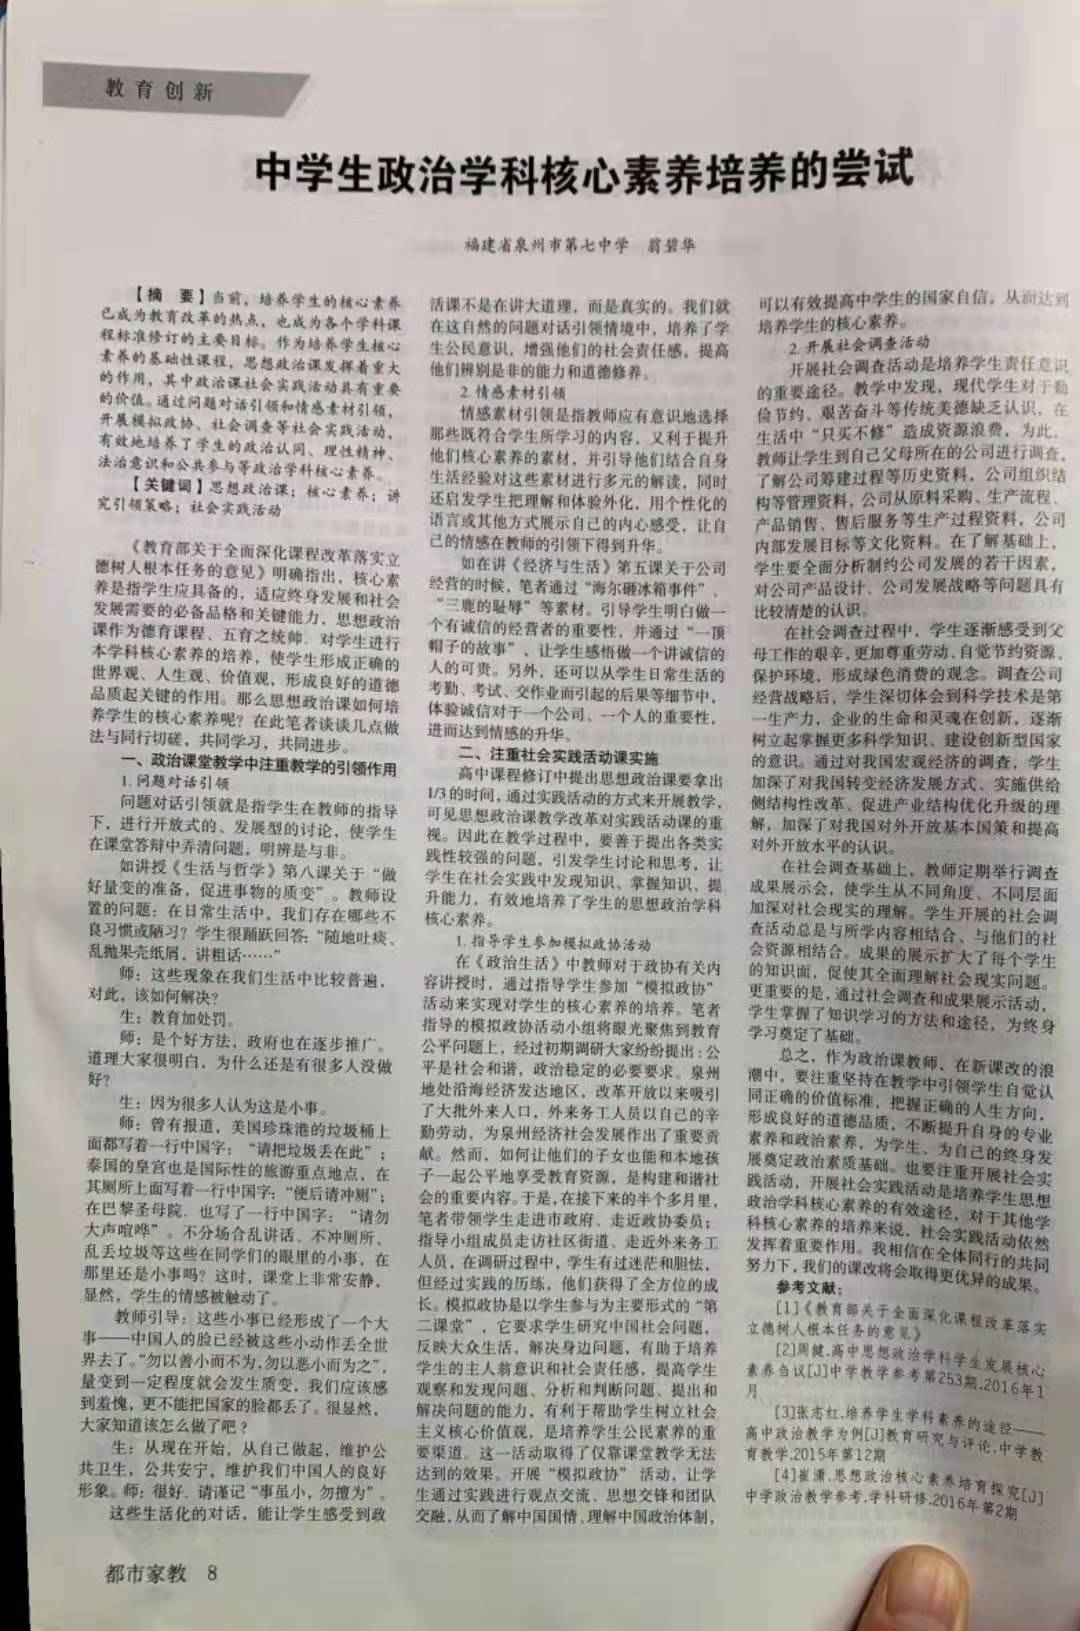 教育创新
中学生政治学科核心素养培养的尝试
福建省泉州市第七中学 翁碧华
【摘 要】当前，培养学生的核心素养
已成为教育改革的热点，也成为各个学科课
程标准修订的主要目标。作为培养学生核心
素养的基础性课程，思想政治课发挥着重大
的作用，其中政治课社会实践活动具有重要
的价值。通过问题对话引领和情感素材引领，
开展模拟政协、社会调查等社会实践活动，
有效地培养了学生的政治认同、理性精神、
法治意识和公共参与等政治学科核心素养。
【关键词】思想政治课；核心素养；讲
究引领策略；社会实践活动
《教育部关于全面深化课程改革落实立
德树人根本任务的意见》明确指出，核心素
养是指学生应具备的，适应终身发展和社会
发展需要的必备品格和关键能力，思想政治
课作为德育课程、五育之统帅．对学生进行
本学科核心素养的培养，使学生形成正确的
世界观、人生观、价值观，形成良好的道德
品质起关键的作用。那么思想政治课如何培
养学生的核心素养呢？在此笔者谈谈几点做
法与同行切磋，共同学习，共同进步。
一、政治课堂教学中注重教学的引领作用
1.问题对话引领
问题对话引领就是指学生在教师的指导
下，进行开放式的、发展型的讨论，使学生
在课堂答辩中弄清问题，明辨是与非。
如讲授《生活与哲学》第八课关于“做
好量变的准备，促进事物的质变”。教师设
置的问题：在日常生活中，我们存在哪些不
良习惯或陋习？学生很踊跃回答：“随地吐痰、
乱抛果壳纸屑，讲粗话……”
师：这些现象在我们生活中比较普遍，
对此，该如何解决？
生：教育加处罚。
师：是个好方法，政府也在逐步推广。
道理大家很明白，为什么还是有很多人没做
好？
生：因为很多人认为这是小事。
师：曾有报道，美国珍珠港的垃圾桶上
面都写着一行中国字：“请把垃圾丢在此”；
泰国的皇宫也是国际性的旅游重点地点，在
其厕所上面写着一行中国字：“便后请冲厕”；
在巴黎圣母院．也写了一行中国字：“请勿
大声喧哗”。不分场合乱讲话、不冲厕所、
乱丢垃圾等这些在同学们的眼里的小事，在
那里还是小事吗？这时，课堂上非常安静，
显然，学生的情感被触动了。
教师引导：这些小事已经形成了一个大
事——中国人的脸已经被这些小动作丢全世
界去了。“勿以善小而不为,勿以恶小而为之”，
量变到一定程度就会发生质变，我们应该感
到羞愧，更不能把国家的脸都丢了。很显然，
大家知道该怎么做了吧？
生：从现在开始，从自己做起，维护公
共卫生，公共安宁，维护我们中国人的良好
形象。师：很好．请谨记“事虽小，勿擅为”。
这些生活化的对话，能让学生感受到政
活课不是在讲大道理，而是真实的。我们就
在这自然的问题对话引领情境中，培养了学
生公民意识，增强他们的社会责任感，提高
他们辨别是非的能力和道德修养。
2.情感素材引领
情感素材引领是指教师应有意识地选择
那些既符合学生所学习的内容，又利于提升
他们核心素养的素材，并引导他们结合自身
生活经验对这些素材进行多元的解读，同时
还启发学生把理解和体验外化，用个性化的
语言或其他方式展示自己的内心感受，让自
己的情感在教师的引领下得到升华。
如在讲《经济与生活》第五课关于公司
经营的时候，笔者通过“海尔砸冰箱事件”、
“三鹿的耻辱”等素材。引导学生明白做一
个有诚信的经营者的重要性，并通过“一顶
帽子的故事”，让学生感悟做一个讲诚信的
人的可贵。另外，还可以从学生日常生活的
考勤、考试、交作业而引起的后果等细节中，
体验诚信对于一个公司、一个人的重要性，
进而达到情感的升华。
二、注重社会实践活动课实施
高中课程修订中提出思想政治课要拿出
1/3的时间，通过实践活动的方式来开展教学，
可见思想政治课教学改革对实践活动课的重
视。因此在教学过程中，要善于提出各类实
践性较强的问题，引发学生讨论和思考，让
学生在社会实践中发现知识、掌握知识、提
升能力，有效地培养了学生的思想政治学科
核心素养。
1.指导学生参加模拟政协活动
在《政治生活》中教师对于政协有关内
容讲授时，通过指导学生参加“模拟政协”
活动来实现对学生的核心素养的培养。笔者
指导的模拟政协活动小组将眼光聚焦到教育
公平问题上，经过初期调研大家纷纷提出：公
平是社会和谐，政治稳定的必要要求。泉州
地处沿海经济发达地区，改革开放以来吸引
了大批外来人口，外来务工人员以自己的辛
勤劳动，为泉州经济社会发展作出了重要贡
献。然而，如何让他们的子女也能和本地孩
子一起公平地享受教育资源，是构建和谐社
会的重要内容。于是，在接下来的半个多月里，
笔者带领学生走进市政府、走近政协委员；
指导小组成员走访社区街道、走近外来务工
人员，在调研过程中，学生有过迷茫和胆怯，
但经过实践的历练，他们获得了全方位的成
长。模拟政协是以学生参与为主要形式的“第
二课堂”，它要求学生研究中国社会问题，
反映大众生活，解决身边问题，有助于培养
学生的主人翁意识和社会责任感，提高学生
观察和发现问题、分析和判断问题、提出和
解决问题的能力，有利于帮助学生树立社会
主义核心价值观，是培养学生公民素养的重
要渠道。这一活动取得了仅靠课堂教学无法
达到的效果。开展“模拟政协”活动，让学
生通过实践进行观点交流、思想交锋和团队
交融，从而了解中国国情、理解中国政治体制，
可以有效提高中学生的国家自信，从而达到
培养学生的核心素养。
2.开展社会调查活动
开展社会调查活动是培养学生责任意识
的重要途径。教学中发现，现代学生对于勤
俭节约、艰苦奋斗等传统美德缺乏认识，在
生活中“只买不修”造成资源浪费，为此，
教师让学生到自己父母所在的公司进行调查，
了解公司筹建过程等历史资料，公司组织结
构等管理资料，公司从原料采购、生产流程、
产品销售、售后服务等生产过程资料，公司
内部发展目标等文化资料。在了解基础上，
学生要全面分析制约公司发展的若干因素，
对公司产品设计、公司发展战略等问题具有
比较清楚的认识。
在社会调查过程中，学生逐渐感受到父
母工作的艰辛,更加尊重劳动、自觉节约资源、
保护环境，形成绿色消费的观念。调查公司
经营战略后，学生深切体会到科学技术是第
一生产力，企业的生命和灵魂在创新，逐渐
树立起掌握更多科学知识、建设创新型国家
的意识。通过对我国宏观经济的调查，学生
加深了对我国转变经济发展方式、实施供给
侧结构性改革、促进产业结构优化升级的理
解，加深了对我国对外开放基本国策和提高
对外开放水平的认识。
在社会调查基础上，教师定期举行调查
成果展示会，使学生从不同角度、不同层面
加深对社会现实的理解。学生开展的社会调
查活动总是与所学内容相结合、与他们的社
会资源相结合。成果的展示扩大了每个学生
的知识面，促使其全面理解社会现实问题。
更重要的是，通过社会调查和成果展示活动，
学生掌握了知识学习的方法和途径，为终身
学习奠定了基础。
总之，作为政治课教师，在新课改的浪
潮中，要注重坚持在教学中引领学生自觉认
同正确的价值标准，把握正确的人生方向，
形成良好的道德品质，不断提升自身的专业
素养和政治素养，为学生、为自己的终身发
展奠定政治素质基础。也要注重开展社会实
践活动，开展社会实践活动是培养学生思想
政治学科核心素养的有效途径，对于其他学
科核心素养的培养来说，社会实践活动依然
发挥着重要作用。我相信在全体同行的共同
努力下，我们的课改将会取得更优异的成果。
参考文献：
[1]《教育部关于全面深化课程改革落实
立德树人根本任务的意见》
[2]周健.高中思想政治学科学生发展核心
素养刍议[J]中学教学参考第253期,2016年1
月
[3]张志红.培养学生学科素养的途径——
高中政治教学为例[J]教育研究与评论.中学教
育教学.2015年第12期
[4]崔潇.思想政治核心素养培育探究[J]
中学政治教学参考.学科研修.2016年第2期
都市家教 8